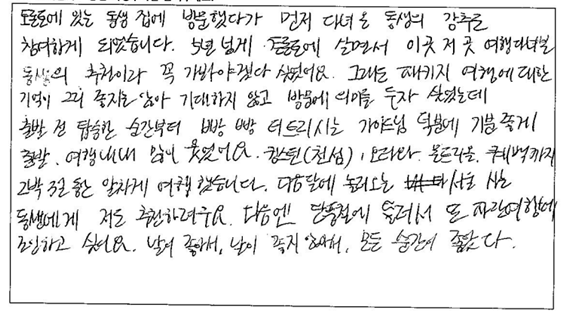 토론토에 있는 동생 집에 방문했다가 먼저 다녀온 동생의 강추로
참여하게 되었습니다. 5년 넘게 토론토에 살면서 이곳 저곳 여행다녀본
동생의 추천이라 꼭 가봐야겠다 싶었어요. 그래도 패키지 여행에 대한
기억이 그리 좋지는 않아 기대하지 않고 방문에 의의를 두자 싶었는데
출발 전 탑승한 순간부터 빵빵 터트리시는 가이드님 덕분에 기분 좋게
출발. 여행내내 많이 웃었어요. 킹스턴(천섬), 오타와, 몬트리올, 퀘벡까지
2박 3일 동안 알차게 여행했습니다. 다음달에 놀러오는 서울 사는
동생에게 저도 추천하려구요. 다음엔 단풍철에 놀러와서 또 파란여행에
조인하고 싶어요. 날이 좋아서, 날이 좋지 않아서, 모든 순간이 좋았다.